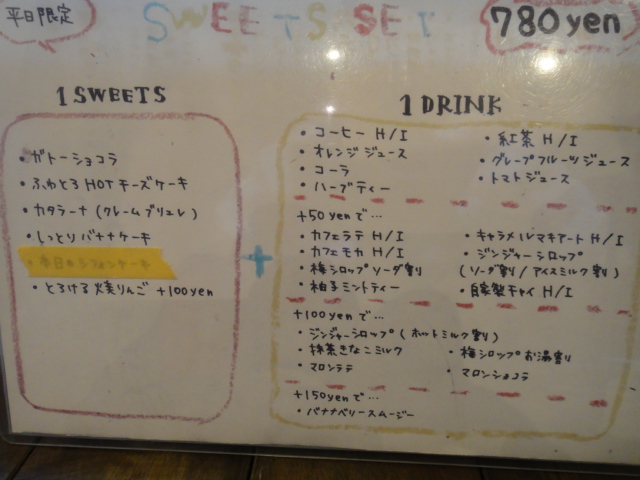 平日限定
SWEETS SET
780yen
1 SWEETS
・ガトーショコラ
・ふわとろHOTチーズケーキ
・カタラーナ(クレームブリュレ)
・しっとりバナナケーキ
・本日のシフォンケーキ
・とろける丈夫りんご +100yen
+
1 DRINK
・コーヒー H/I
・オレンジジュース
・コーラ
・ハーブティー
・紅茶 H/I
・グレープフルーツジュース
・トマトジュース
+50yenで…
・カフェラテ H/I
・カフェモカ H/I
・梅シロップソーダ割り
・柚子ミントティー
・キャラメルマキアート H/I
・ジンジャーシロップ
(ソーダ割り/アイスミルク割り)
・自家製チャイ H/I
+100yenで…
・ジンジャーシロップ(ホットミルク割り)
・抹茶きなこミルク
・マロンラテ
・梅シロップお湯割り
・マロンショコラ
+150yenで…
・バナナベリースムージー